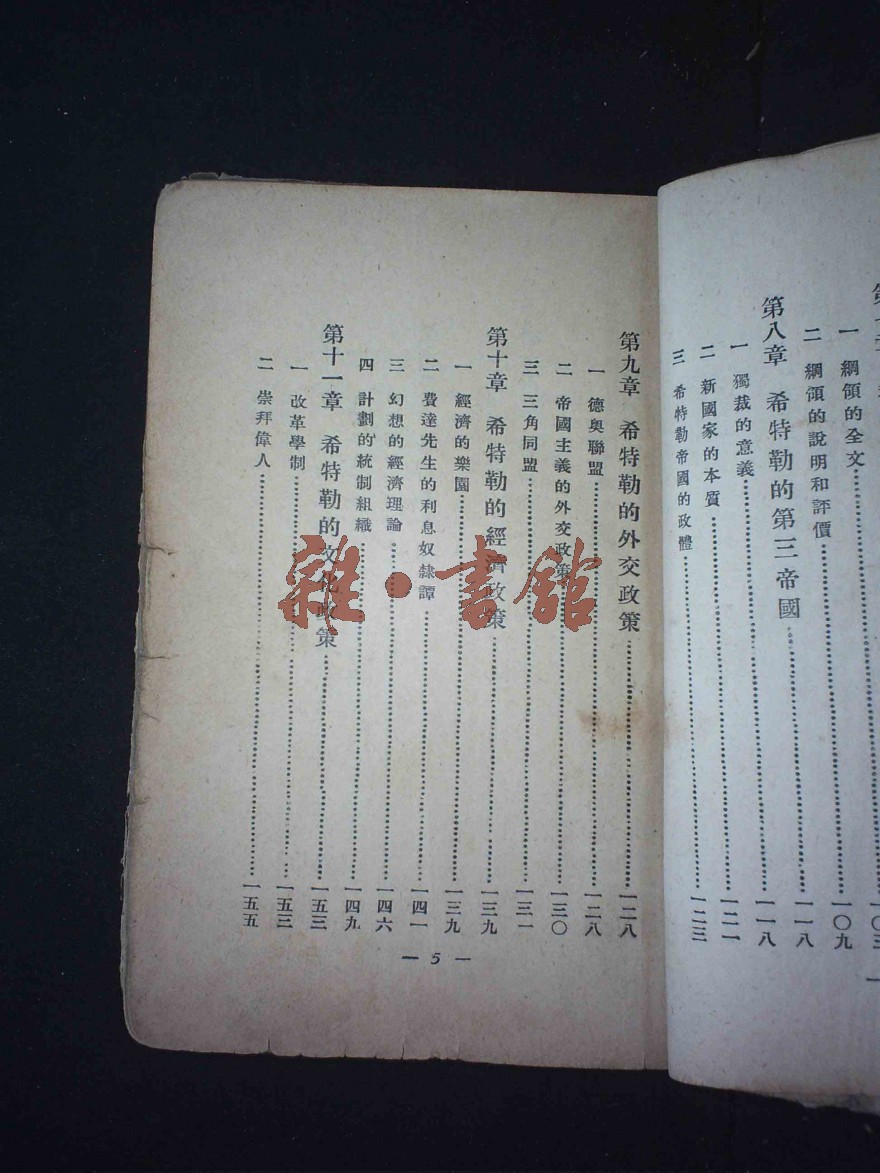 一 綱領的全文……一〇九
二 綱領的說明和評價……一一八
第八章 希特勒的第三帝國……一一八
一 獨裁的意義
二 新國家的本質……一二一
三 希特勒帝國的政體……一二三
第九章 希特勒的外交政策……一二八
一 德奧聯盟……一二八
二 帝國主義的外交政策……一三〇
三 三角同盟……一三一
第十章 希特勒的經濟政策……一三九
一 經濟的樂園……一三九
二 費達先生的利息奴隸譚……一四一
三 幻想的經濟理論……一四六
四 計劃的統制組織……一四九
第十一章 希特勒的文化政策……一五三
一 改革學制……一五三
二 崇拜偉人……一五五
— 5 —
雜·書館